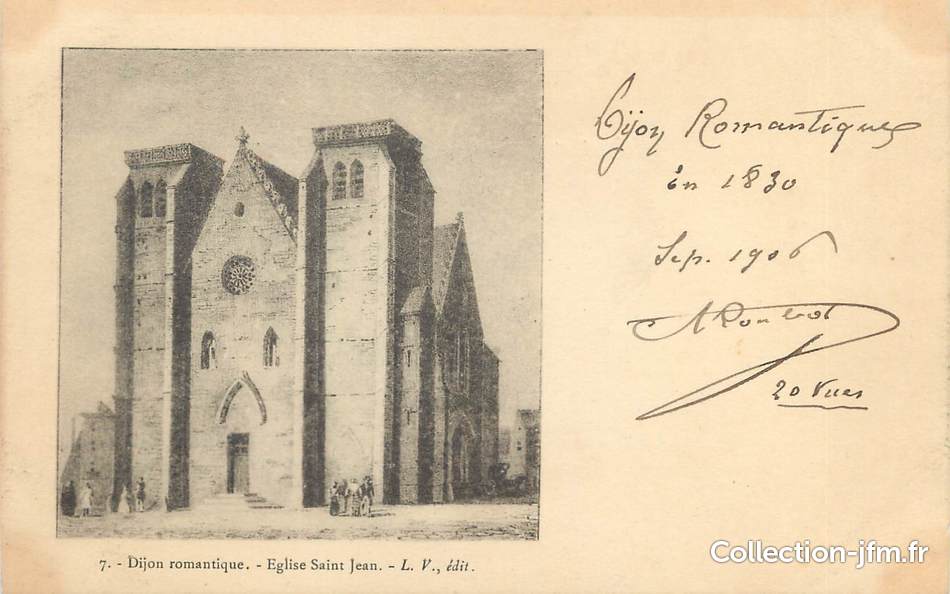 Dijon Romantique
en 1830
Sep. 1906
20 Vues
7. - Dijon romantique. - Eglise Saint Jean. - L. V., édit.
Collection-jfm.fr